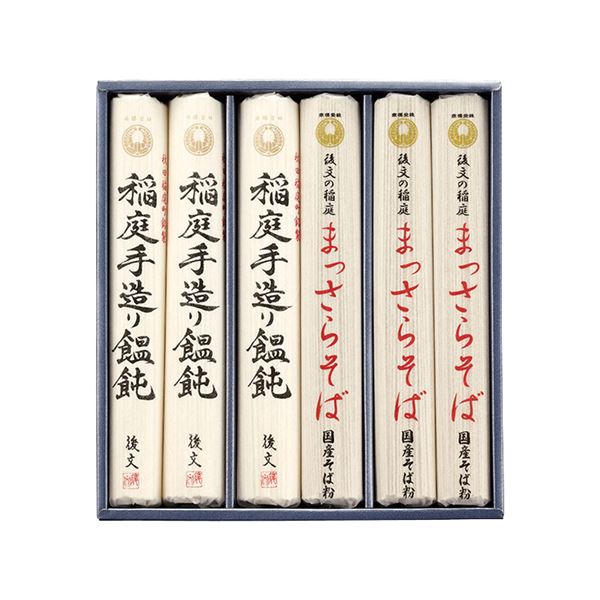 稲庭手造り饂飩
後文
稲庭手造り饂飩
後文
稲庭手造り饂飩
後文
後文の稲庭
まっさらそば
国産そば粉
後文の稲庭
まっさらそば
国産そば粉
後文の稲庭
まっさらそば
国産そば粉